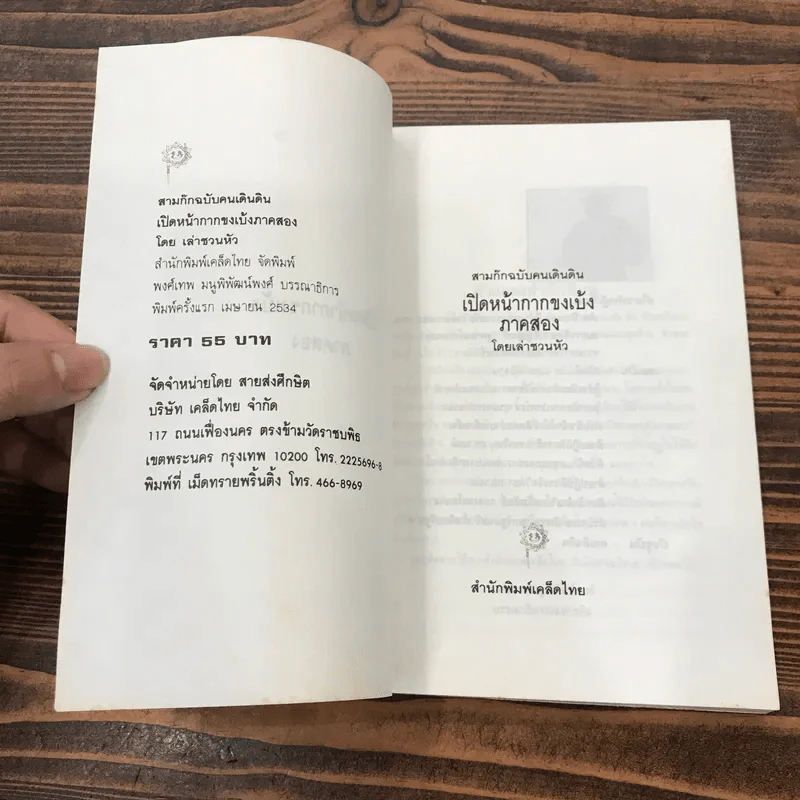 สามก๊กฉบับคนเดินดิน
เปิดหน้ากากขงเบ้งภาคสอง
โดย เล่าชวนหัว
สำนักพิมพ์เคล็ดไทย จัดพิมพ์
พงศ์เทพ มนูพิพัฒน์พงศ์ บรรณาธิการ
พิมพ์ครั้งแรก เมษายน 2534
ราคา 55 บาท
จัดจำหน่ายโดย สายส่งศึกษิต
บริษัท เคล็ดไทย จำกัด
117 ถนนเฟื่องนคร ตรงข้ามวัดราชบพิธ
เขตพระนคร กรุงเทพ 10200 โทร. 2225696-8
พิมพ์ที่ เม็ดทรายพริ้นติ้ง โทร. 466-8969
สามก๊กฉบับคนเดินดิน
เปิดหน้ากากขงเบ้ง
ภาคสอง
โดยเล่าชวนหัว
สำนักพิมพ์เคล็ดไทย